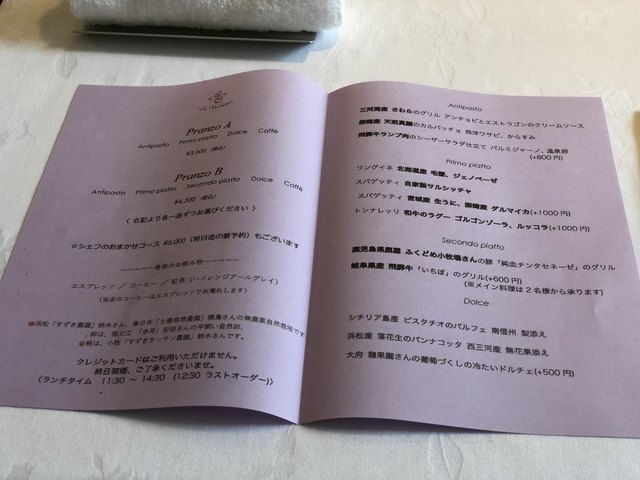 Pranzo A
Antipasto Primo piatto Dolce Caffè
¥3,000 (税込)
Pranzo B
Antipasto Primo piatto Secondo piatto Dolce Caffè
¥4,500 (税込)
〈 右記より各一品ずつお選びください 〉
☆シェフのおまかせコース ¥6,000（前日迄の要予約）もございます
〜〜〜〜〜食後のお飲み物〜〜〜〜〜
エスプレッソ ／ コーヒー ／ 紅茶（ハイレンジアールグレイ）
（当店のコーヒーはエスプレッソでお淹れします）
浜松「すずき農園」鈴木さん、春日井「土磨自然農園」横島さんの無農薬自然栽培です
卵は、祖父江「歩荷」安田さんの平飼い自然卵。
桃は、小牧「すずきサンサン農園」鈴木さんです。
クレジットカードはご利用いただけません。
終日禁煙、ご了承くださいませ。
〈ランチタイム 11:30 〜 14:30 (12:30 ラストオーダー)〉
Antipasto
三河湾産 さわらのグリル アンチョビとエストラゴンのクリームソース
天然真鯛のカルパッチョ 西洋ワサビ、からすみ
飛騨牛ランプ肉のシーザーサラダ仕立て パルミジャーノ、温泉卵
(+800 円)
Primo piatto
リングイネ 北海道産 毛蟹、ジェノベーゼ
スパゲッティ 自家製サルシッチャ
スパゲッティ 宮城産 生うに、 ダルマイカ(+1000 円)
トンナレッリ 和牛のラグー ゴルゴンゾーラ、ルッコラ(+1000 円)
Secondo piatto
鹿児島県鹿屋 ふくどめ小牧場さんの豚「純血サンタセネーゼ」のグリル
岐阜県産 飛騨牛「いちぼ」のグリル(+600 円)
(※メイン料理は 2 名様から承ります)
Dolce
シチリア島産 ピスタチオのパルフェ 南信州 梨添え
浜松産 落花生のパンナコッタ 西三河産 無花果添え
大府 龍果園さんの葡萄づくしの冷たいドルチェ(+500 円)